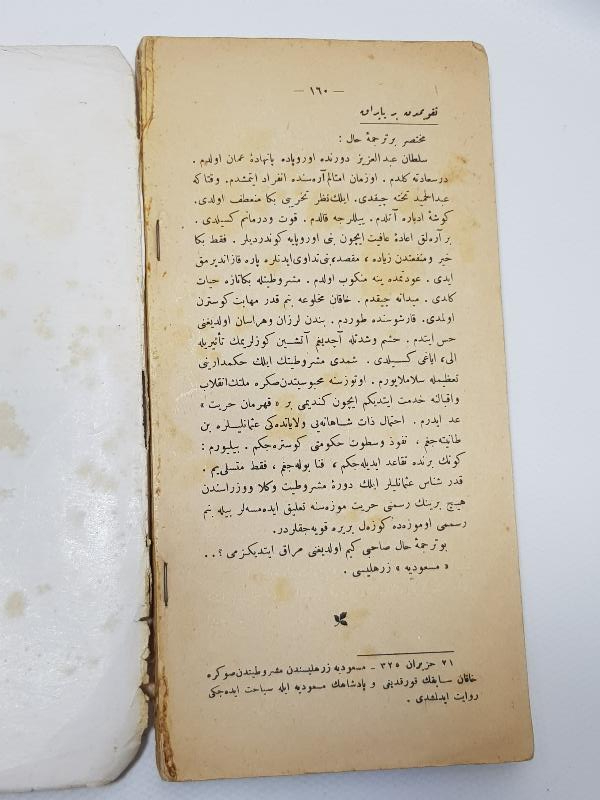 — ١٦٠ —
تقويمدن بر ياپراق
مختصر بر ترجمهٔ حال :
سلطان عبدالعزيز دورنده اوروپاده پانهادهٔ عمان اولدم .
درسعادته كلدم . اوزمان امثالم آره‌سنده انفراد ايتمشدم . وقتا كه
عبدالحميد تخته چيقدى . ايلك نظر تخريبى بكا منعطف اولدى.
كوشهٔ ادباره آتلدم . ييللرجه قالدم . قوت ودرمانم كسيلدى .
بر آره‌لق اعادهٔ عافيت ايچون بنى اوروپايه كوندرديلر . فقط بكا
خير ومنفعتدن زياده ، مقصد، بنى تداوى ايدنلره پاره قازانديرمق
ايدى . عودتمده ينه منكوب اولدم . مشروطيتله بكا تازه حيات
كلدى . ميدانه چيقدم . خاقان مخلوعه بنم قدر مهابت كوسترن
اولمدى. قارشوسنده طوردم . بندن لرزان وهراسان اولديغنى
حس ايتدم . خشم وشدتله آچديغم آتشين كوزلريمك تأثيريله
الى، اياغى كسيلدى . شمدى مشروطيتك ايلك حكمدارينى
تعظيمله سلاملايورم . اوتوز سنه محبوسيتدن صكره ملتك انقلاب
واقبالنه خدمت ايتديكم ايچون كنديمى بر « قهرمان حريت »
عد ايدرم . احتمال ذات شاهانه‌يى ولاياتده‌كى عثمانليلره بن
طانيته‌جغم ، نفوذ وسطوت حكومتى كوستره‌جكم . بيليورم :
كونك برنده تقاعد ايديله‌جكم ، فنا بوله‌جغم ، فقط متسلى‌يم .
قدر شناس عثمانليلر ايلك دورهٔ مشروطيت وكلا ووزراسندن
هيچ برينك رسمنى حريت موزه‌سنه تعليق ايده‌مسه‌لر بيله بنم
رسممى اوموزه‌ده كوزل بر يره قويه‌جقلردر.
بو ترجمهٔ حال صاحبى كيم اولديغنى مراق ايتديكزمى ؟ . .
« مسعوديه » زرهليسى .
٢١ حزيران ٣٢٥ ـ مسعوديه زرهليسندن مشروطيتدن صوكره
خاقان سابقك قورقديغى و پادشاهك مسعوديه ايله سياحت ايده‌جكى
روايت ايدلشدى .